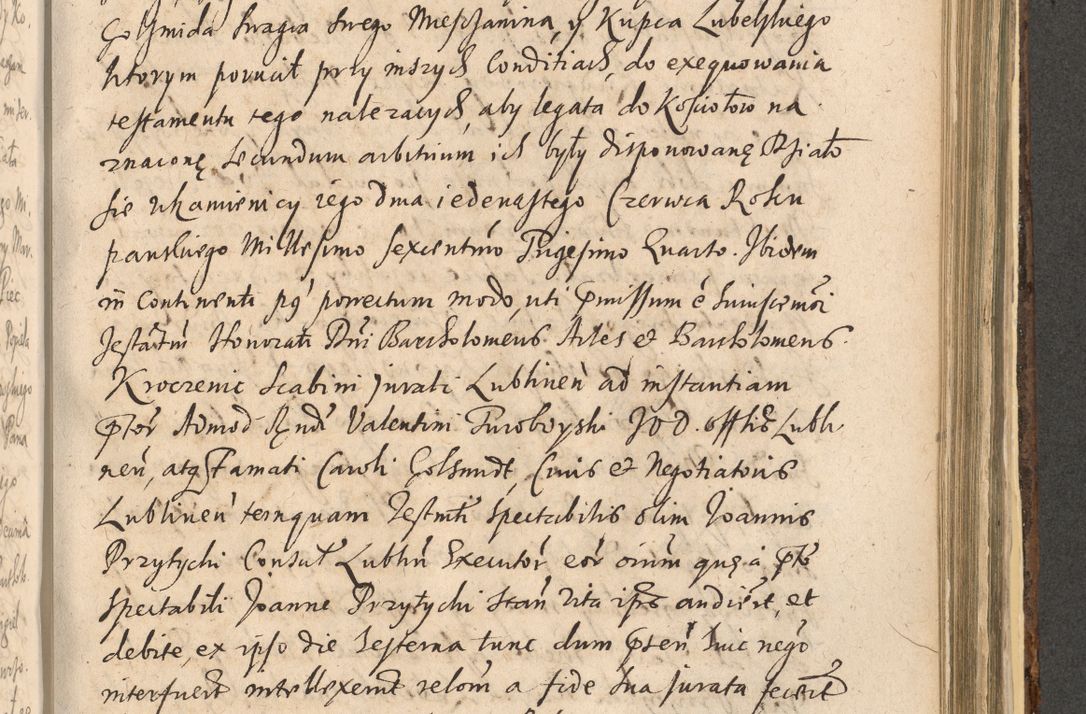 Golsmida swagra swego Miesczanina, y Kupca Lubelskiego
ktorym porucił przy inszych Conditiach, do exequowania
testamentu tego nalezacych, aby legata do Kosciołow na
znaczonę secundum arbitrium ich były disponowanę Działo
sie w kamienicy iego dma iedenastego Czerwca Roku
panskiego Millesimo sexcentmo Trigesimo Quarto. Ibidem
in Continenti pġ porrectum modo, uti pmissum ē huiuscemōi
Testm̄tm̄ Honorati Dn̄i Bartholomeus Ailes et Bartholomeus
Kroczenic Scabini jurati Lublineń ad instantiam
ptor Admod Rndi Valentini Turoboyski JVD. offtis Lubli
neń, atq Famati Caroli Golsmidt, Civis et Negotiatoris
Lublineń temquam Testmti spectabilis olim Joannis
Przytycki Consul Lubliń Executor eor oīnm quę a pto
spectabili Joanne Przytycki stan vita ips audiert, et
debite, ex ipso die hesterna tunc dum pseń huic nego
interfuert intellexernt relom a fide sua jurata fecert